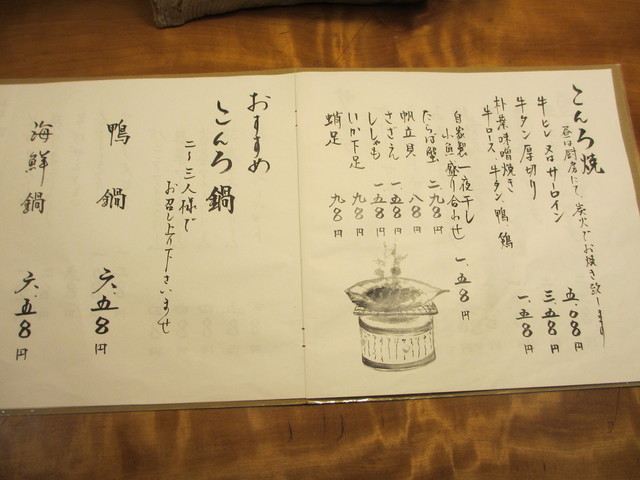 こんろ焼
昼は厨房にて、炭火でお焼き致します
牛ヒレ 又はサーロイン 五、〇八円
牛タン厚切り 三、五八円
朴葉味噌焼き 一、五八円
牛ロース 牛タン 鴨 鶏
自家製一夜干し
小魚盛り合わせ 一、五八円
たらば蟹 二、九八円
帆立貝 八八円
さざえ 一、五八円
ししゃも 一、五八円
いか下足 九八円
蛸足 九八円
おすすめ
こんろ鍋
二〜三人様で
お召し上り下さいませ
鴨鍋 六、五八円
海鮮鍋 六、五八円